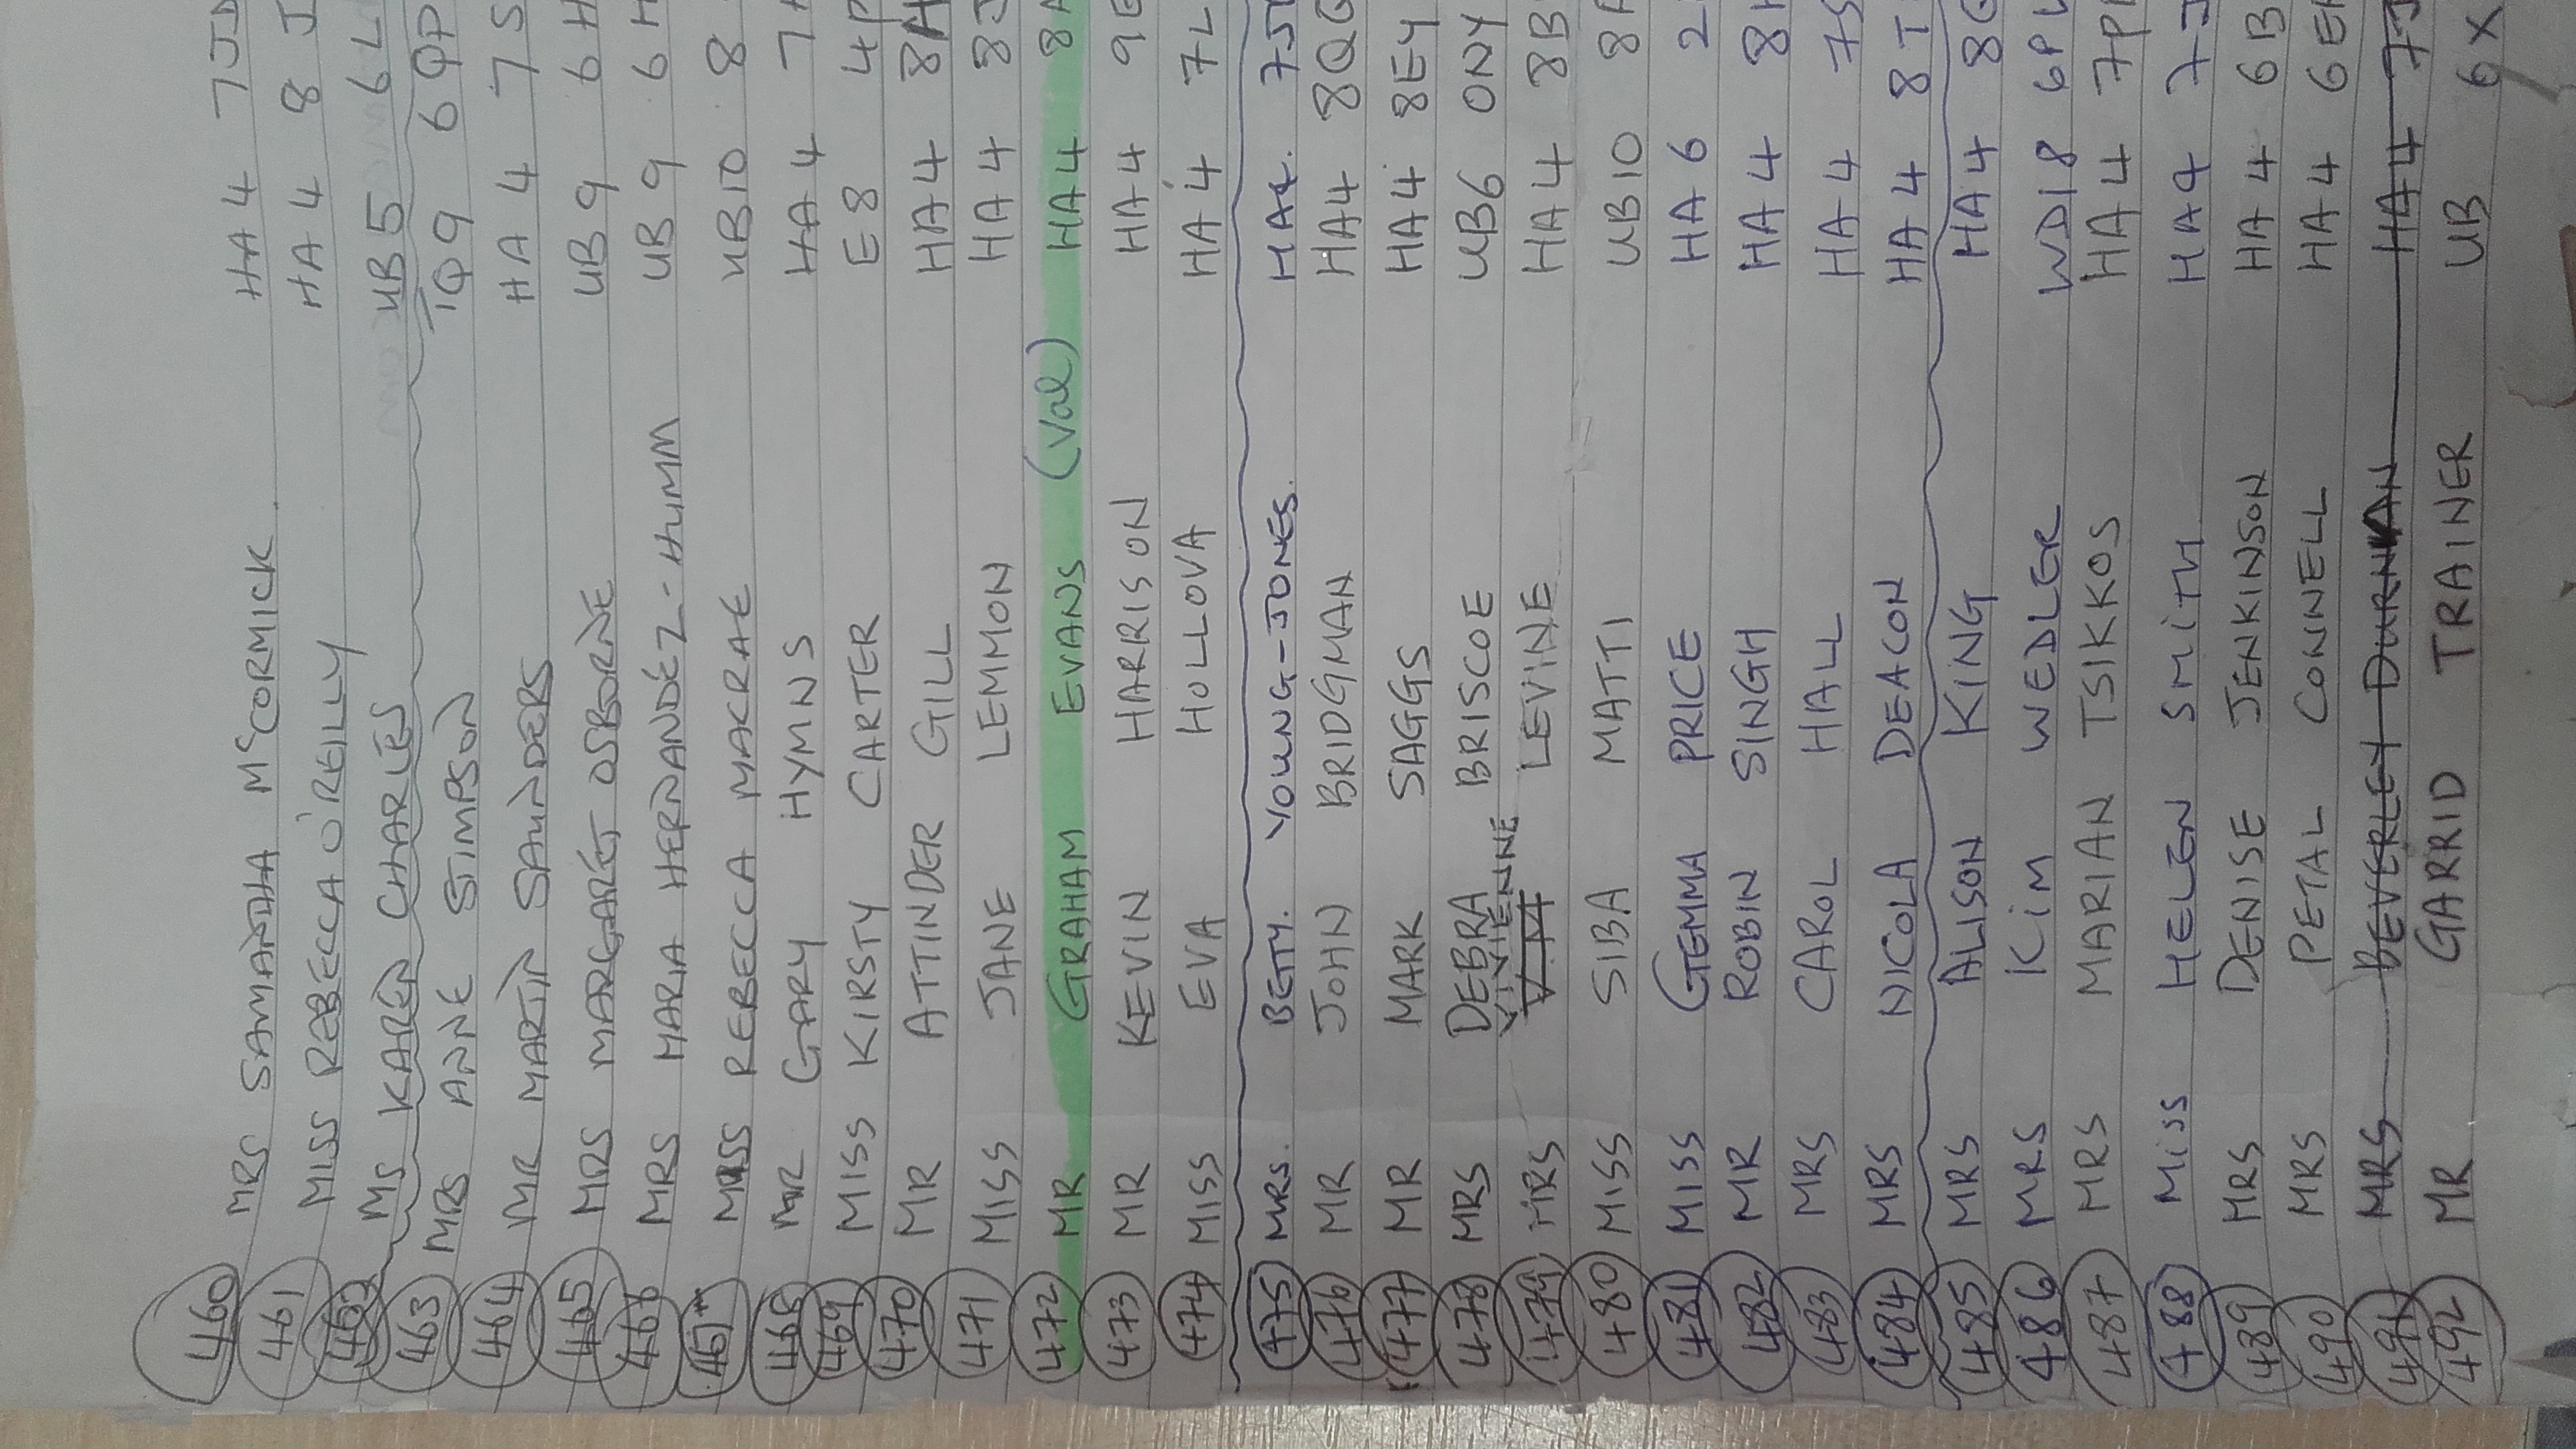 460 MRS SAMANTHA McCORMICK. HA4 7JD
461 MISS REBECCA O'REILLY HA4 8 J
462 MS KAREN CHARLES UB5 6L
463 MRS ANNE STIMPSON TQ9 6QP
464 MR MARTIN SAUNDERS HA4 7S
465 MRS MARGARET OSBORNE UB9 6H
466 MRS MARIA HERNANDEZ-HUMM UB9 6H
467 MISS REBECCA MACRAE UB10 8
468 MR GARY HYMNS HA4 7
469 MISS KIRSTY CARTER E8 4P
470 MR ATTINDER GILL HA4 8H
471 MISS JANE LEMMON HA4 8J
472 MR GRAHAM EVANS (Val) HA4 8A
473 MR KEVIN HARRISON HA4 9E
474 MISS EVA HOLLOVA HA4 7L
475 MRS. BETTY. YOUNG-JONES. HA4. 7J
476 MR JOHN BRIDGMAN HA4 8QG
477 MR MARK SAGGS HA4 8EY
478 MRS DEBRA BRISCOE UB6 0NY
VIVIENNE
479 MRS V.M LEVINE HA4 8B
480 MISS SIBA MATTI UB10 8
481 MISS GEMMA PRICE HA6 2
482 MR ROBIN SINGH HA4 8
483 MRS CAROL HALL HA4 7S
484 MRS NICOLA DEACON HA4 8T
485 MRS ALISON KING HA4 8G
486 MRS KiM WEDLER WD18 6P
487 MRS MARIAN TSIKKOS HA4 7P
488 MiSS HELEN SMiTH HA4 7J
489 MRS DENISE JENKINSON HA4 6B
490 MRS PETAL CONNELL HA4 6E
491 MRS BEVERLEY DURNAN HA4 7J
492 MR GARRID TRAINER UB 6X